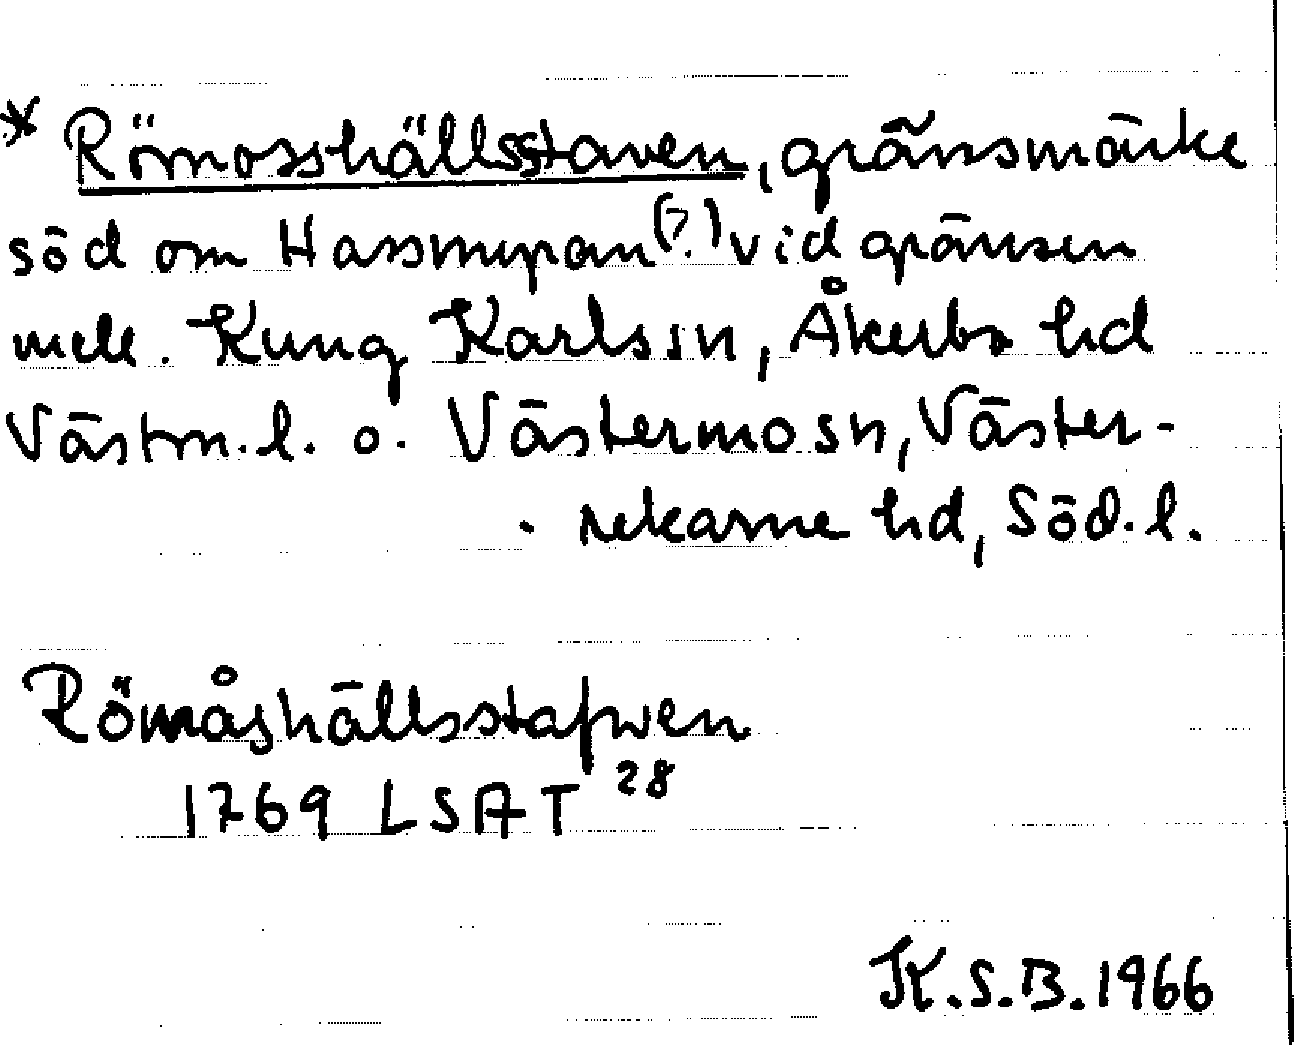 * Römosshällsstaven, gränsmärke
söd om Hassmyran (?) vid gränsen
mell. Kung Karls sn, Åkerbo hd
Västm. l. o. Västermo sn, Väster-
rekarne hd, Söd. l.
Römåshällsstafwen
1769 LSA T 28
K.S.B. 1966